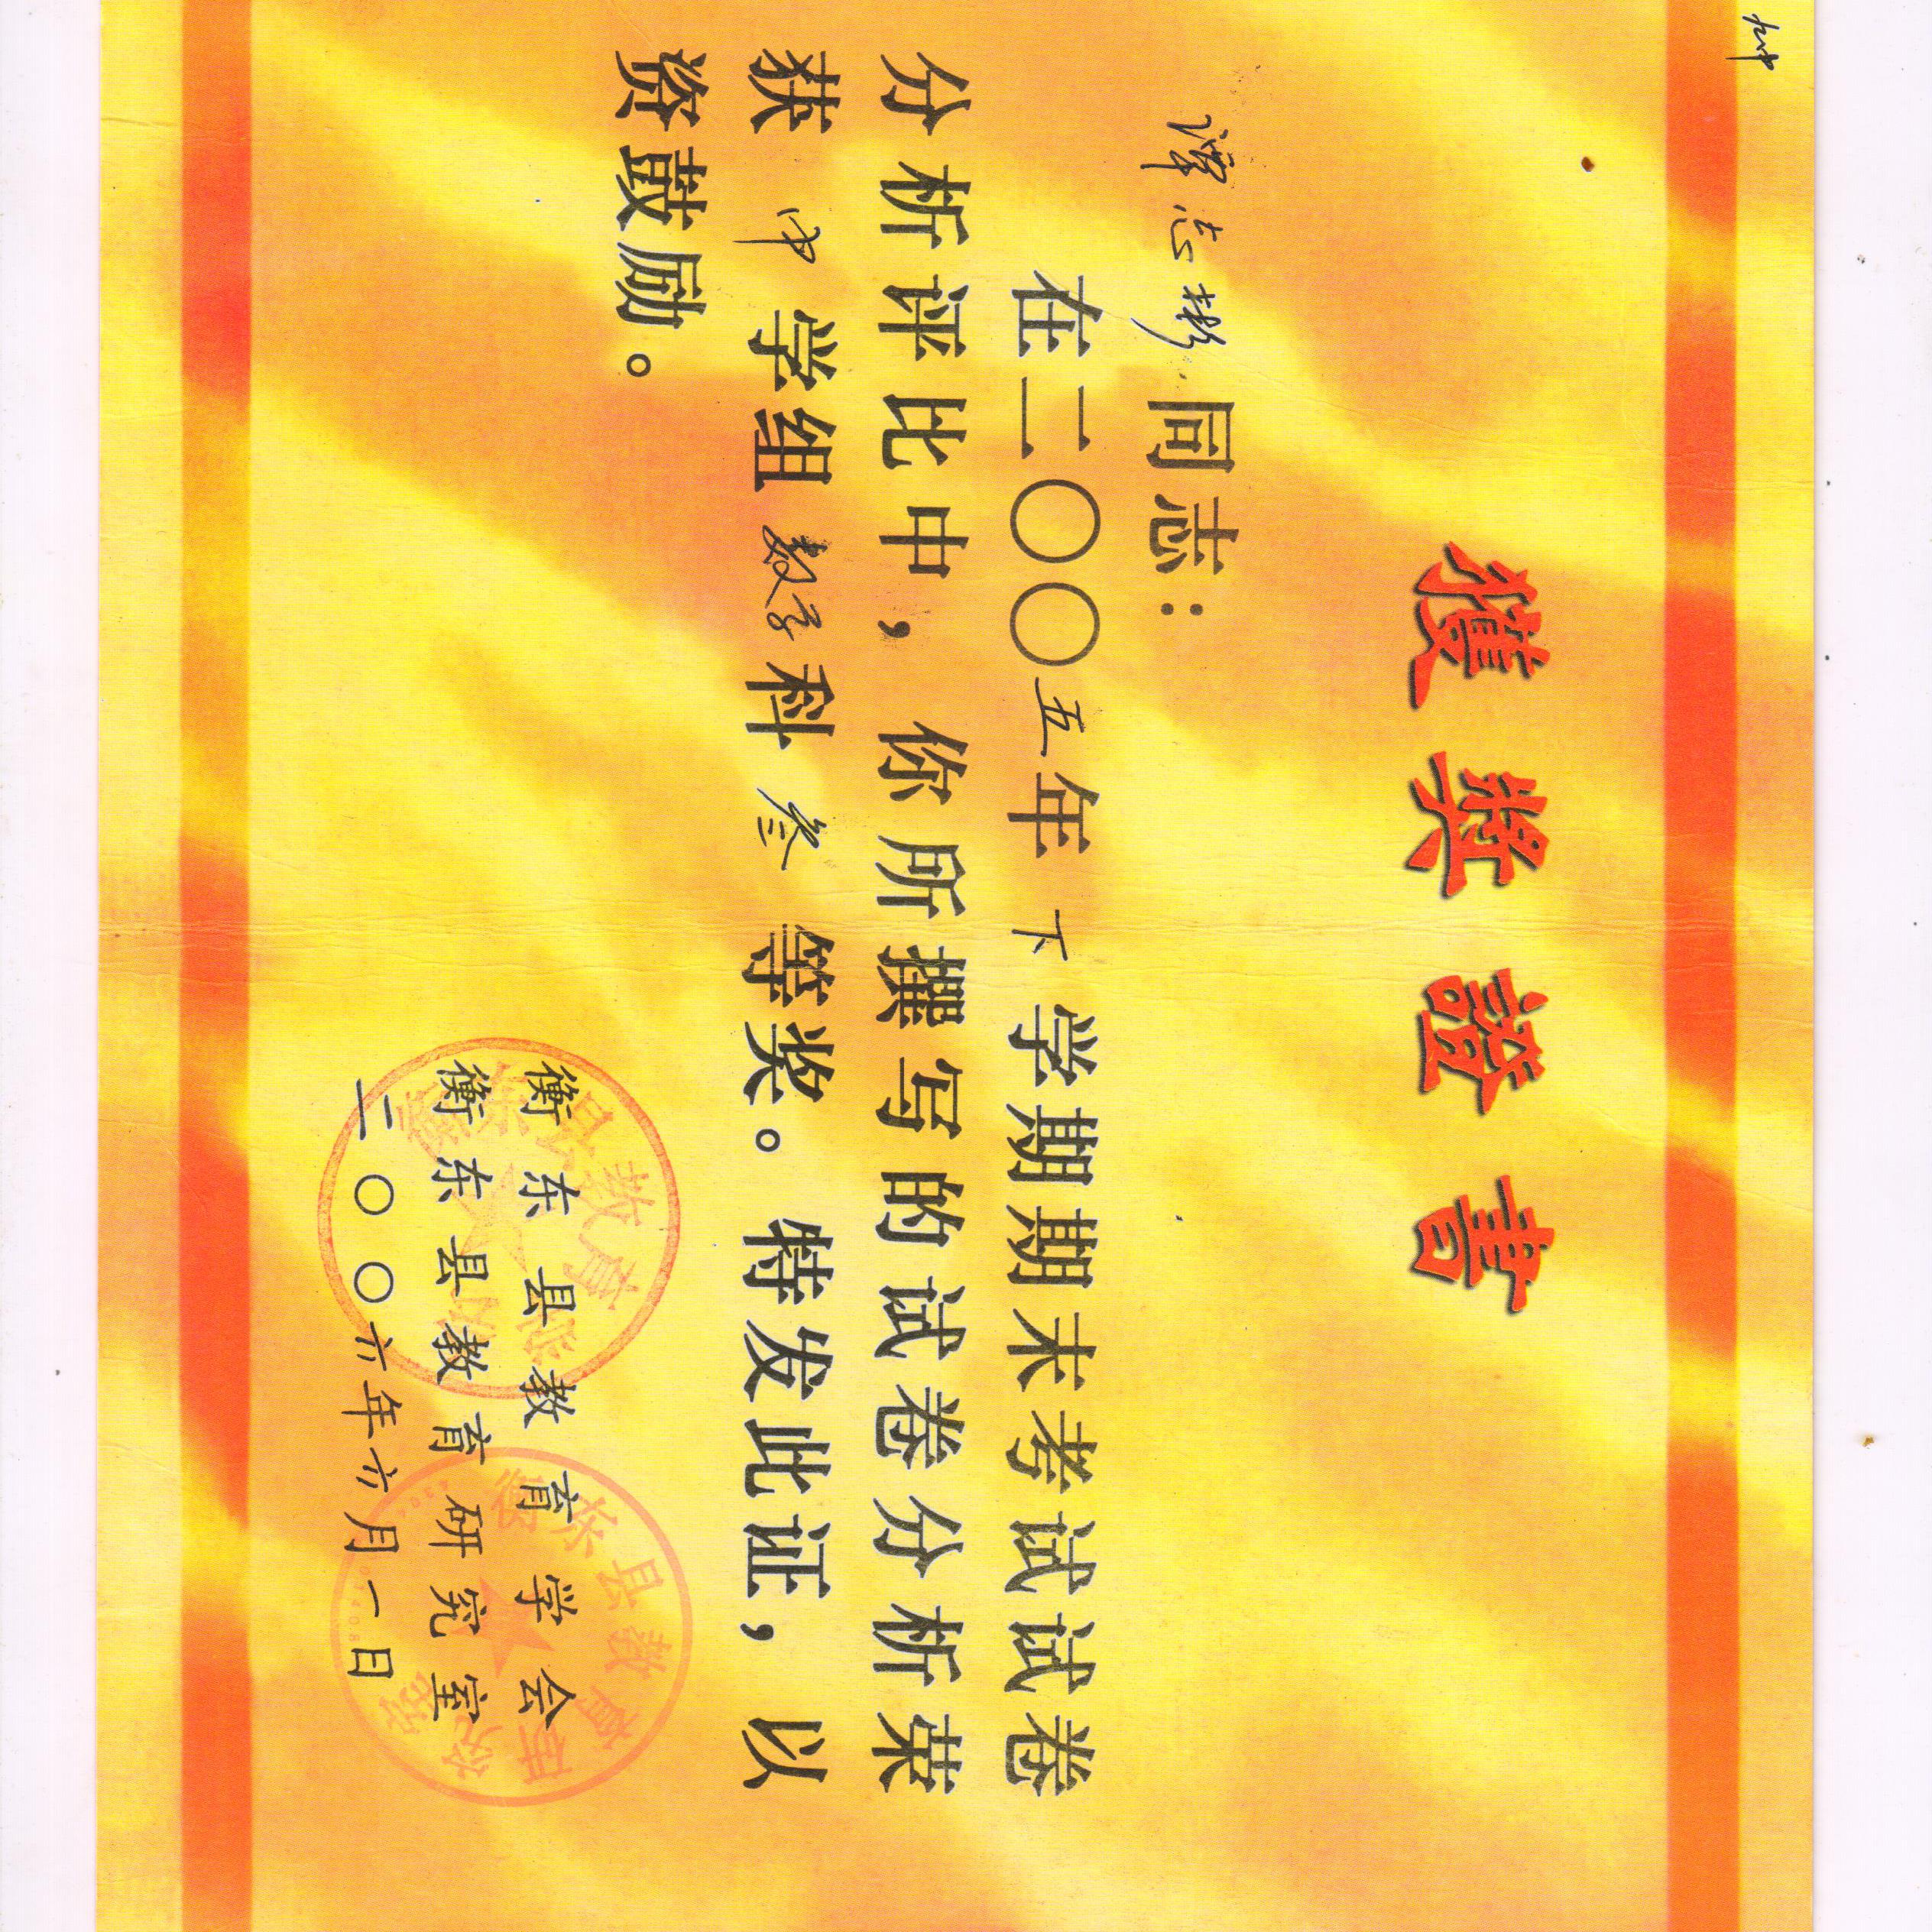 獲奖證書
谭志彬同志：
在二〇〇五年下学期期末考试试卷
分析评比中，你所撰写的试卷分析荣
获中学组数学科叁等奖。特发此证，以
资鼓励。
衡东县教育学会
衡东县教育研究室
二〇〇六年六月一日
衡东县教育学会
衡东县教育研究室